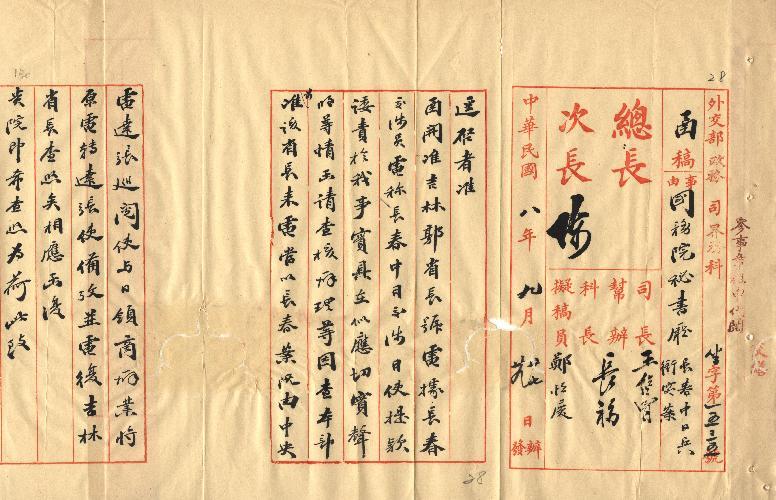 28
外交部政務司界務科
字第一五三五號
函稿
事由
國務院祕書廳
長春中日兵
衝突案
總長
次長
司長
王繼曾
幫辦
長福
科長
擬稿員
中華民國八年九月
日辦發
逕啓者准
函開准吉林郭省長號電據長春
交涉員電稱長春中日交涉日使提款
諉責於我事實具在似應切實聲
明等情函請查核辦理等因查本部
准該省長來電當以長春案況由中央
電達張巡閱使與日領商辦業將
原電轉達張使備攷並電復吉林
省長查照矣相應函復
貴院即希查照為荷此致
28